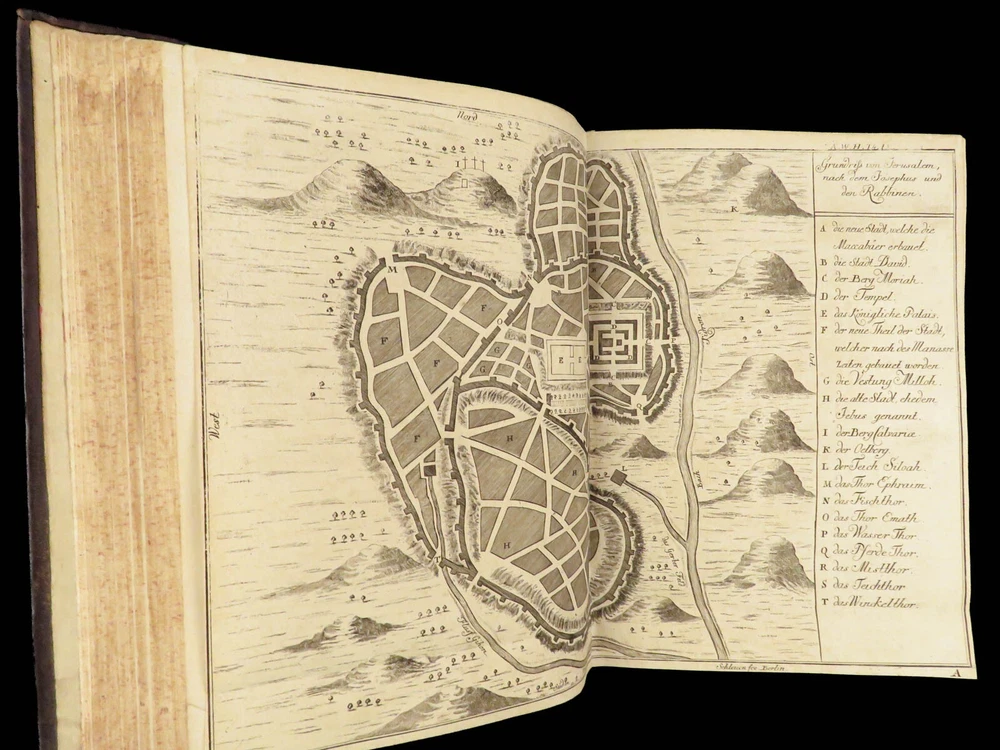 Nord
West
Ost
I
K
M
F
F
F
F
O
G
G
E
E
D
Q
H
H
H
L
T
Bach
Grundriß von Jerusalem,
nach dem Josephus und
den Rabbinen.
A die neue Stadt, welche die
Maccabäer erbauet.
B die Stadt David.
C der Berg Moriah.
D der Tempel.
E das Königliche Palais.
F der neue Theil der Stadt,
welcher nach des Manasse
zeiten gebauet worden
G die Vestung Milloh.
H die alte Stadt, ehedem
Jebus genannt.
I der Berg Calvariæ
K der Oelberg.
L der Teich Siloah.
M das Thor Ephraim.
N das Fischthor.
O das Thor Emath
P das Wasser Thor
Q das Pferde Thor.
R das Mistthor.
S das Teichthor
T das Winckelthor.
Schleuen fec. Berlin
A